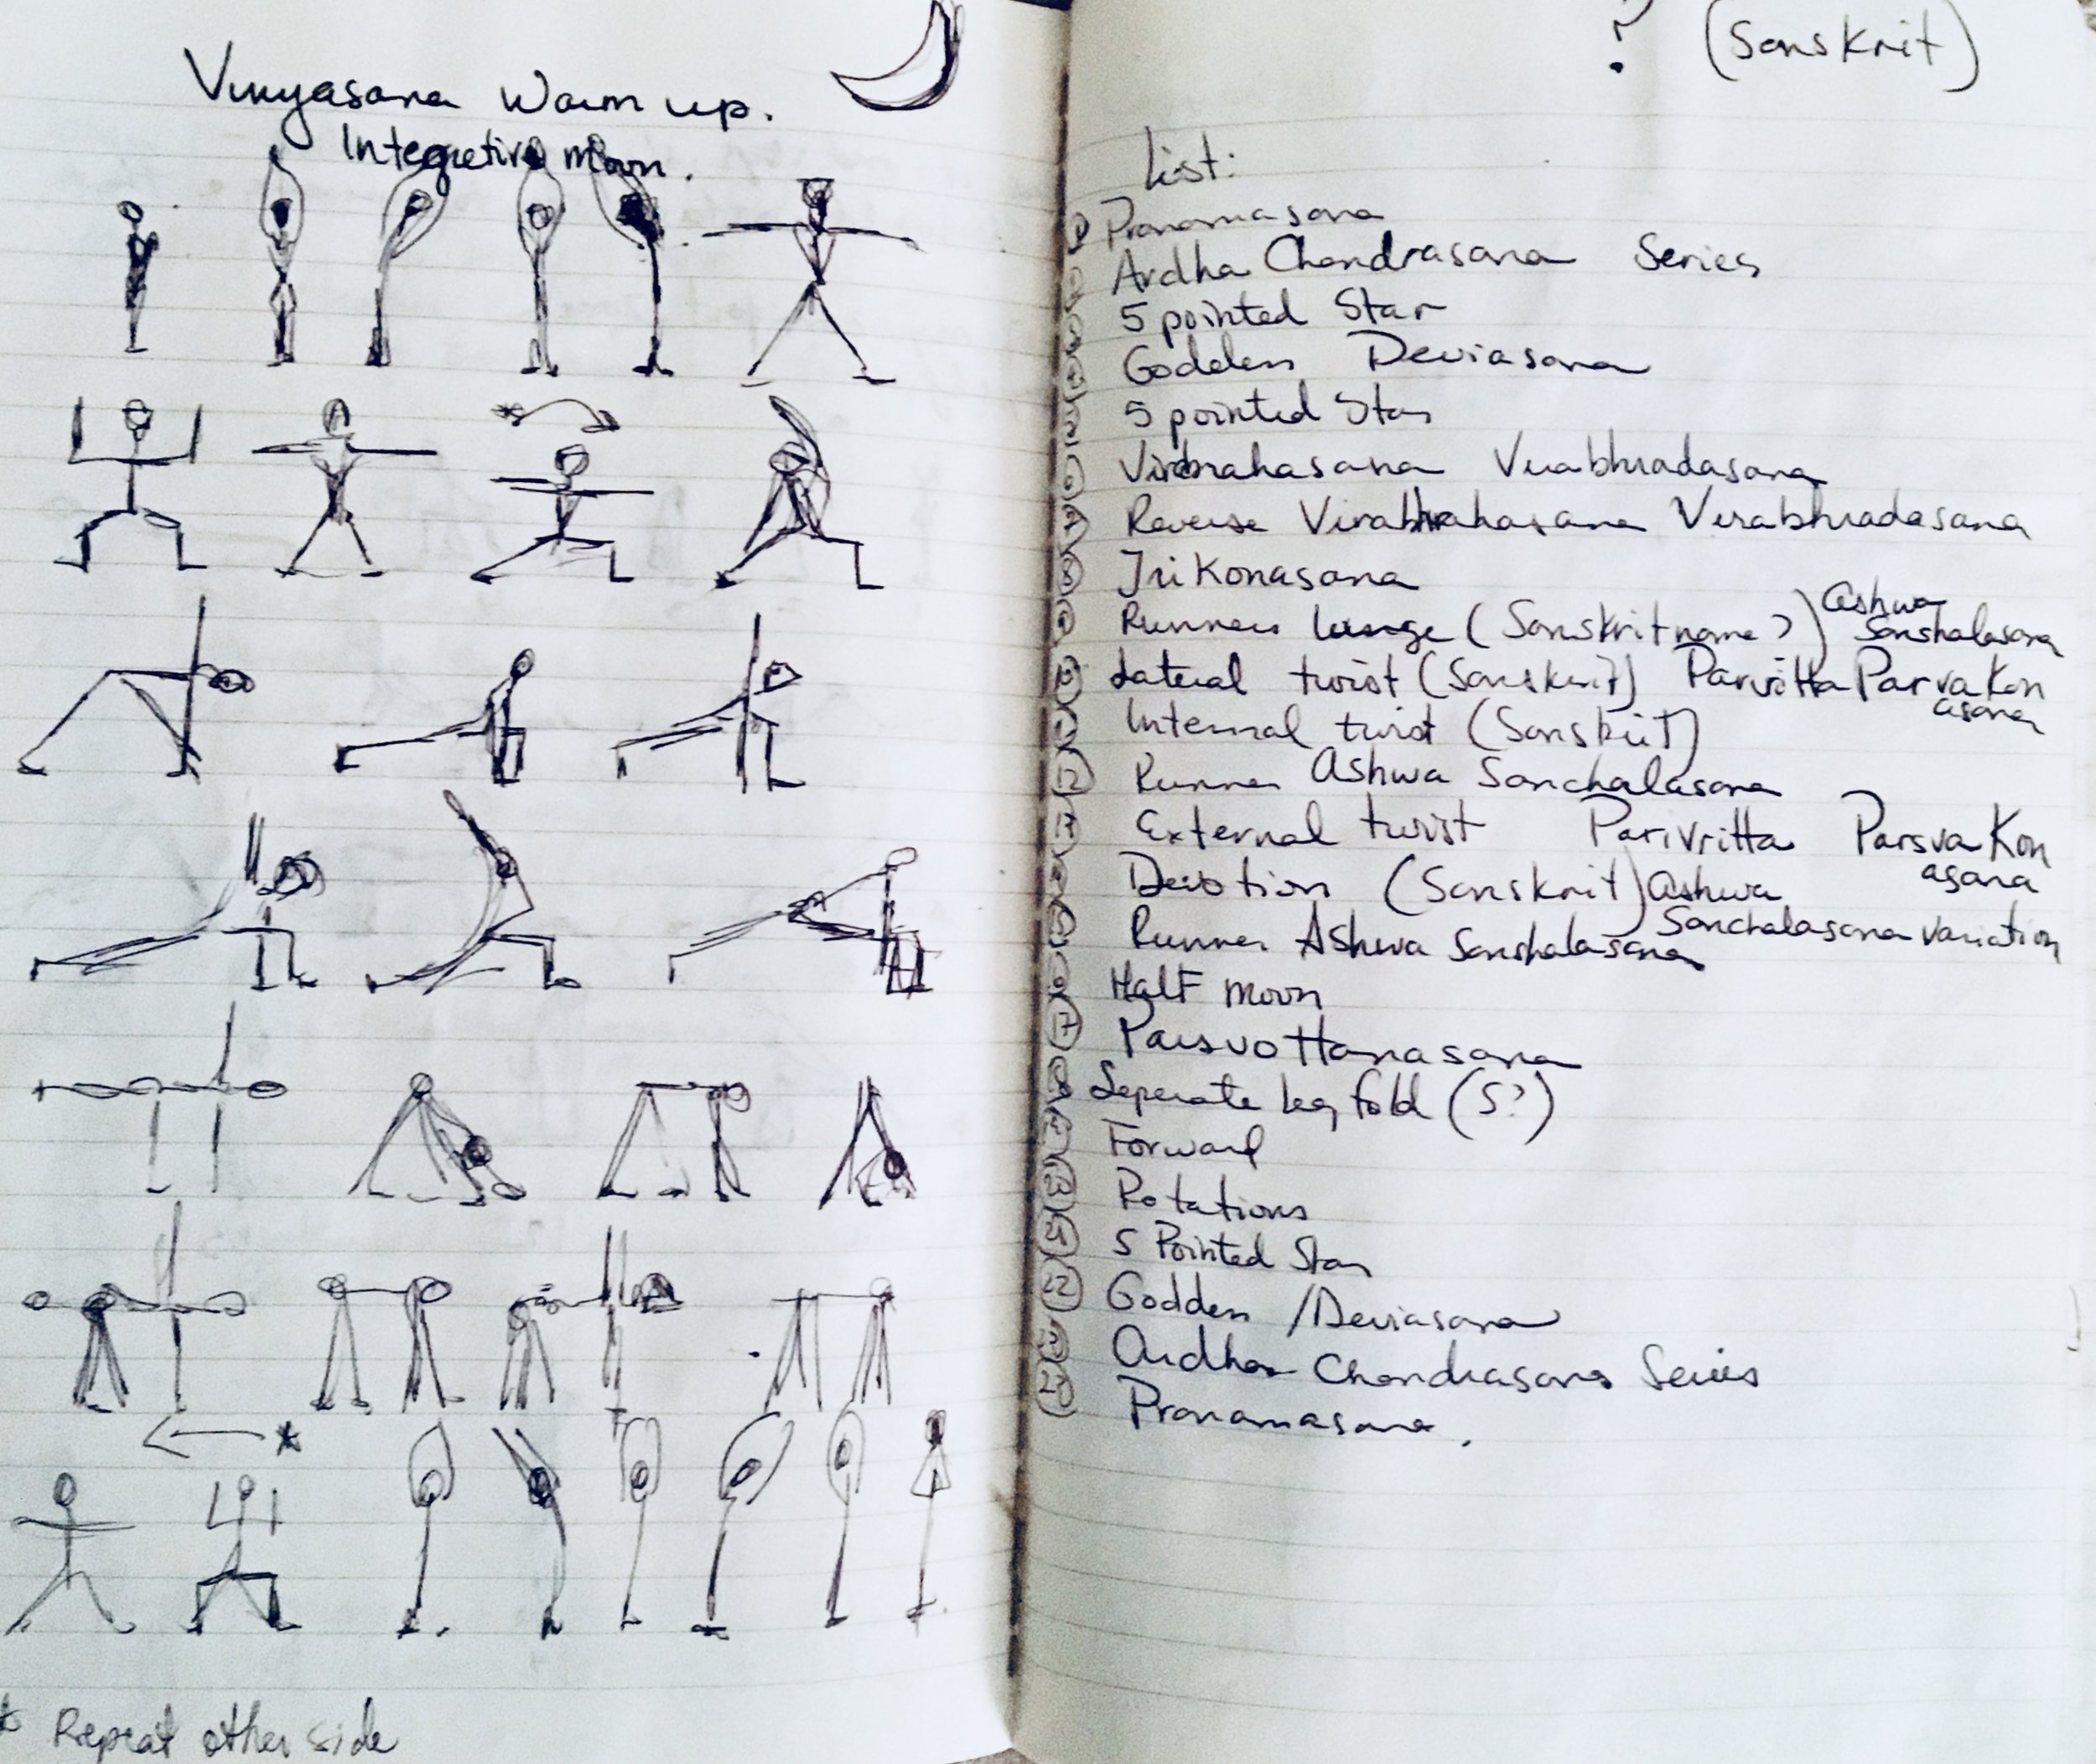 Vinyasana Warm up.
Integrative Moon.
* Repeat other side
? (Sanskrit)
List:
1 Pranamasana
Ardha Chandrasana Series
5 pointed Star
Goddess Deviasana
5 pointed Star
Virabrahasana Virabhradasana
Reverse Virabhrahasana Virabhradasana
8 Trikonasana
9 Runners lunge (Sanskrit name?) Ashwa Sanshalasana
10 Lateral twist (Sanskrit) Parvritta Parvakon asana
11 Internal twist (Sanskrit)
12 Runner Ashwa Sanchalasana
13 External twist Parivritta Parsvakon asana
Devotion (Sanskrit) Ashwa Sanchalasana variation
Runner Ashwa Sanshalasana
Half moon
17 Parsvottanasana
Seperate leg fold (S?)
Forward
Rotations
5 Pointed Star
22 Goddess /Deviasana
Ardha Chandrasana Series
Pranamasana.